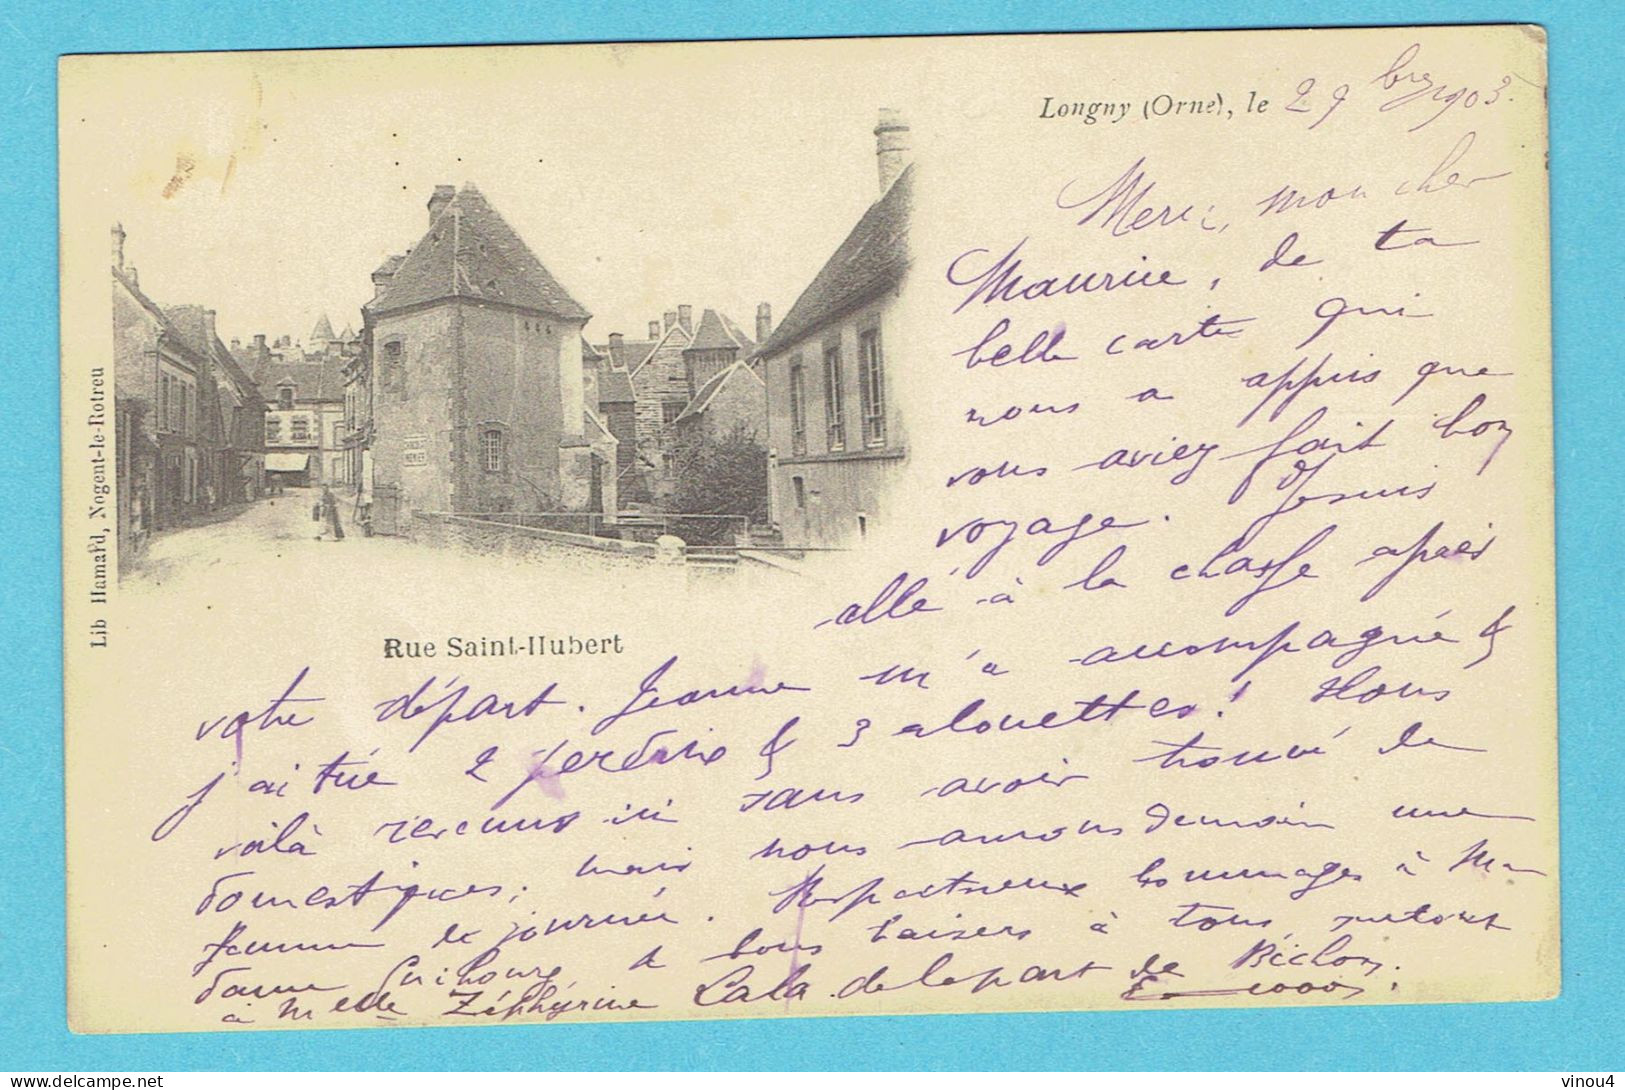 Longny (Orne), le 29 bre 1903.
Merci, mon cher
Maurice, de ta
belle carte qui
nous a appris que
vous aviez fait bon
voyage. Je suis
allé à la chasse après
votre départ. Jeanne m'a accompagné &
j'ai tué 2 perdrix & 3 alouettes! Nous
voilà revenus ici sans avoir trouvé de
domestiques; mais nous aurons demain une
femme de journée. Respectueux hommages à Ma
dame Guibourg & bons baisers à tous, surtout
à Melle Zéphyrine Lala de la part de Bichon.
Rue Saint-Hubert
Lib Hamard, Nogent-le-Rotreu
MENIER
vinou4